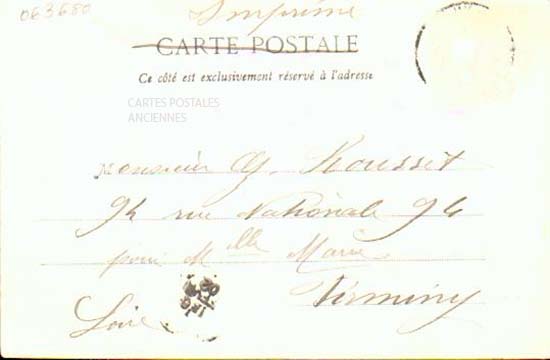 063680
Imprimé
CARTE POSTALE
Ce côté est exclusivement réservé à l'adresse
CARTES POSTALES
ANCIENNES
Monsieur G. Rousset
94 rue Nationale 94
pour Mlle Marie
Firminy
Loire